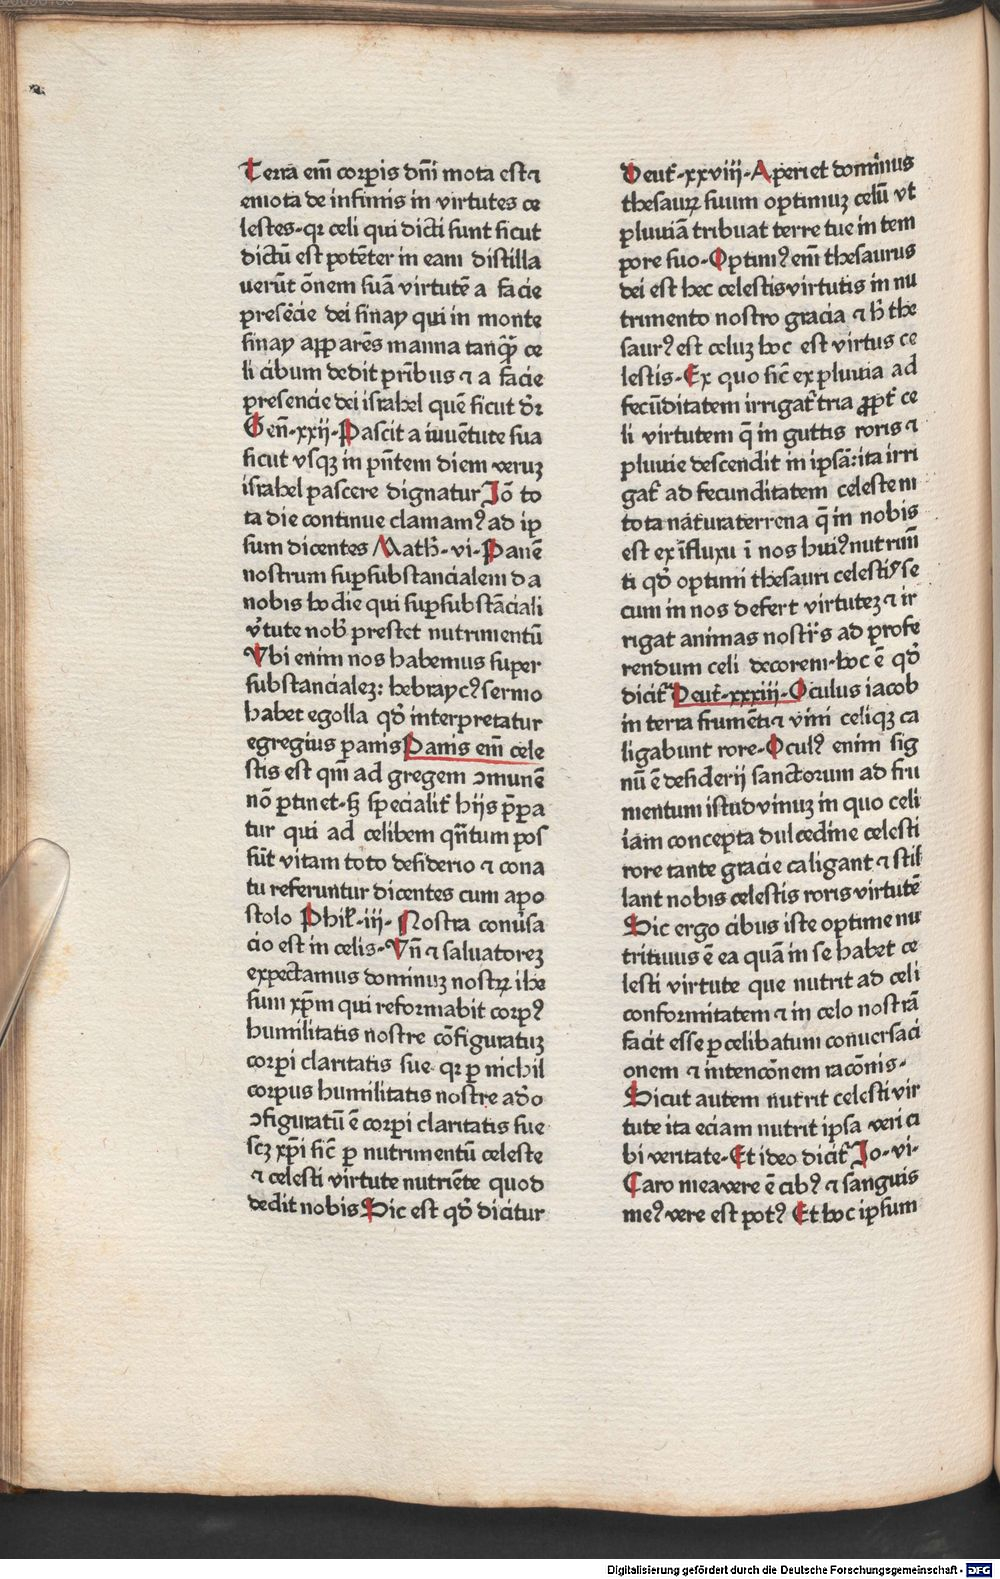 Terra em̄ corꝑis dn̄i mota est ⁊
emota de infimis in virtutes ce
lestes·qꝛ celi qui dicti sunt sicut
dictū est potēter in eam distilla
uerūt ōnem suā virtutē a facie
presēcie dei sinay qui in monte
sinay apparēs manna tanꝙ̄ ce
li cibum dedit pr̄ibus ⁊ a facie
presencie dei israhel quē sicut dr̄
Gen̄·xxij·Pascit a iuuētute sua
sicut vsqꝫ in pn̄tem diem veruꝫ
israhel pascere dignatur Iō to
ta die continue clamamꝰ ad ip
sum dicentes Math̄·vi·Panē
nostrum suꝑsubstancialem da
nobis hodie qui suꝑsubstāciali
v̓tute nob̓ prestet nutrimentū
Vbi enim nos habemus super
substancialeꝫ: hebraycꝰ sermo
habet egolla qd̓ interpretatur
egregius panis Panis em̄ cele
stis est qm̄ ad gregem ɔmunē
nō ꝑtinet·sꝫ specialit̓ hijs p̄ꝑa
tur qui ad celibem qn̄tum pos
sūt vitam toto desiderio ⁊ cona
tu referuntur dicentes cum apo
stolo Phil̓·iii·Nostra conūsa
cio est in celis·Vn̄ ⁊ saluatoreꝫ
expectamus dominuꝫ nostrꝫ ihe
sum xp̄m qui reformabit corpꝰ
humilitatis nostre cōfiguratuꝫ
corpi claritatis sue·qꝛ ꝑ nichil
corpus humilitatis nostre adeo
ɔfiguratū ē corpi claritatis sue
scꝫ xp̄i sic̄ ꝑ nutrimentū celeste
⁊ celesti virtute nutriēte quod
dedit nobis Sic est qd̓ dicitur
Deut̓·xxviij·Aperiet dominus
thesauꝝ suum optimuꝫ celū vt
pluuiā tribuat terre tue in tem
pore suo·Optimꝰ em̄ thesaurus
dei est hec celestis virtutis in nu
trimento nostro gracia ⁊ h̓ the
saurꝰ est celuꝫ hoc est virtus ce
lestis·Ex quo sic̄ ex pluuia ad
fecūditatem irrigat̓ tr̄a ꝓpt̓ ce
li virtutem q̄ in guttis roris ⁊
pluuie descendit in ipsā: ita irri
gat̓ ad fecunditatem celestem
tota natura terrena q̄ in nobis
est ex īfluxu ī nos huiꝰ nutrim̄
ti qd̓ optimi thesauri celestis se
cum in nos defert virtuteꝫ ⁊ ir
rigat animas nostris ad profe
rendum celi decorem·hoc ē qd̓
dicit̓ Deut̓·xxxiii·Oculus iacob
in terra frumēti ⁊ vini celiqꝫ ca
ligabunt rore·Oculꝰ enim sig
nū ē desiderij sanctorum ad fru
mentum istud vinuꝫ in quo celi
iam concepta dulcedine celesti
rore tante gracie caligant ⁊ stil
lant nobis celestis roris virtutē
Sic ergo cibus iste optime nu
tritiuus ē ea quā in se habet ce
lesti virtute que nutrit ad celi
conformitatem ⁊ in celo nostrā
facit esse ꝑ celibatum conuersaci
onem ⁊ intencōnem racōnis·
Sicut autem nutrit celesti vir
tute ita eciam nutrit ipsa veri ci
bi veritate·Et ideo dicit̓ Jo·vi·
Caro mea vere ē cibꝰ ⁊ sanguis
meꝰ vere est potꝰ Et hoc ipsum
Digitalisierung gefördert durch die Deutsche Forschungsgemeinschaft - DFG